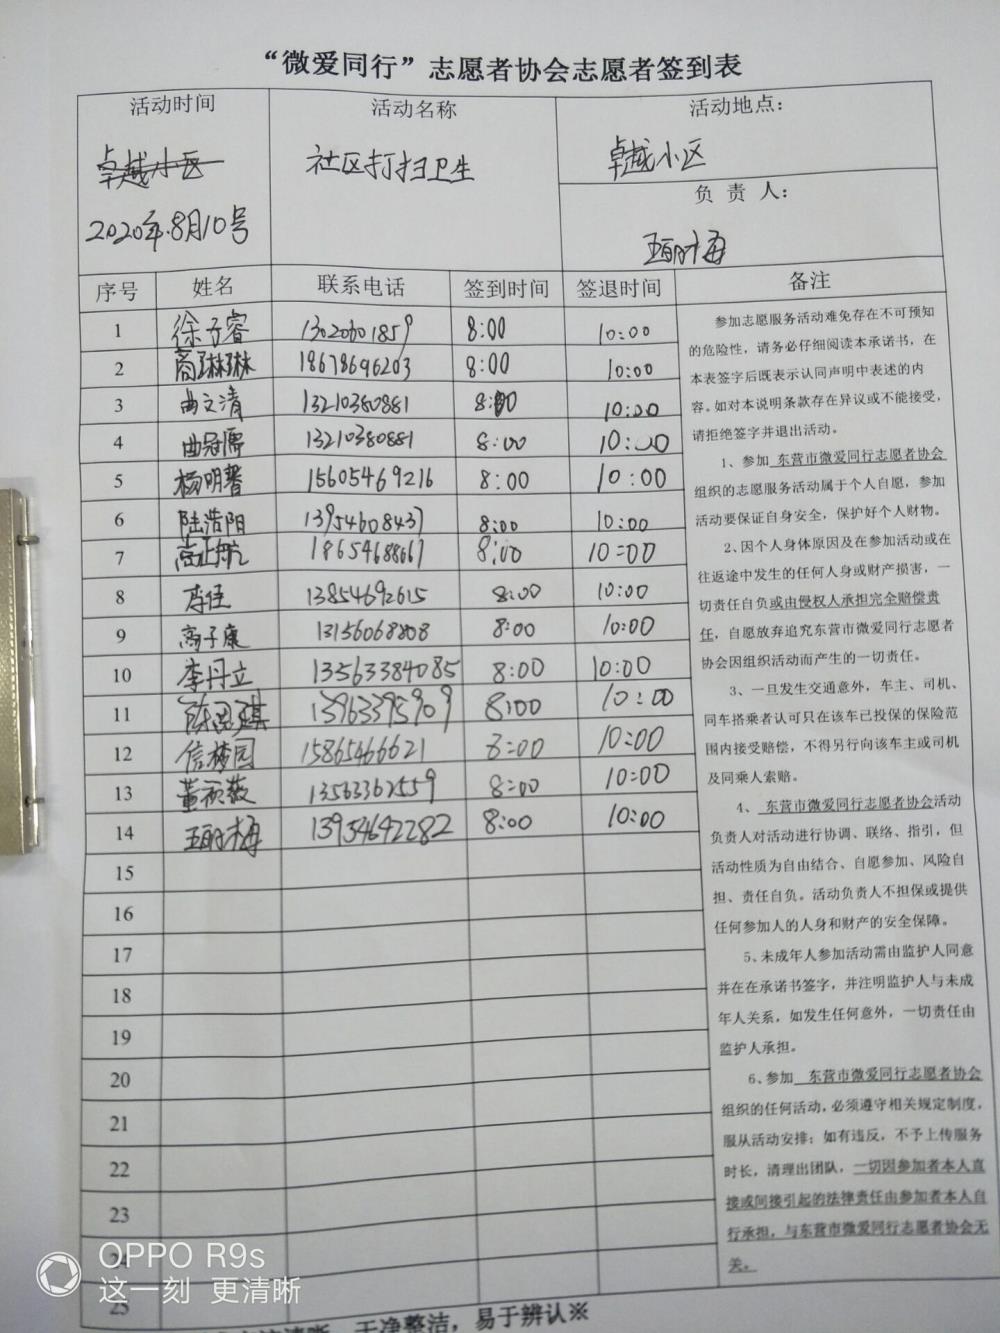 “微爱同行”志愿者协会志愿者签到表
活动时间
活动名称
活动地点：
卓越小区
2020年.8月10号
社区打扫卫生
卓越小区
负 责 人：
序号 姓名 联系电话 签到时间 签退时间 备注
1 徐子睿 13020601859 8:00 10:00
2 商琳琳 18678696203 8:00 10:00
3 曲文清 13210380881 8:00 10:00
4 曲冠儒 13210380881 8:00 10:00
5 杨明馨 15605469216 8:00 10:00
6 陆浩阳 13954608437 8:00 10:00
7 18654688661 8:00 10:00
8 李佳 13854692615 8:00 10:00
9 高子康 13156068808 8:00 10:00
10 李丹立 13563384085 8:00 10:00
11 陈思琪 13963395909 8:00 10:00
12 信梦园 15865466621 8:00 10:00
13 董 13563362559 8:00 10:00
14 13954642282 8:00 10:00
15
16
17
18
19
20
21
22
23
24
25
参加志愿服务活动难免存在不可预知
的危险性，请务必仔细阅读本承诺书，在
本表签字后既表示认同声明中表述的内
容。如对本说明条款存在异议或不能接受，
请拒绝签字并退出活动。
1、参加 东营市微爱同行志愿者协会
组织的志愿服务活动属于个人自愿，参加
活动要保证自身安全，保护好个人财物。
2、因个人身体原因及在参加活动或在
往返途中发生的任何人身或财产损害，一
切责任自负或由侵权人承担完全赔偿责
任，自愿放弃追究东营市微爱同行志愿者
协会因组织活动而产生的一切责任。
3、一旦发生交通意外，车主、司机、
同车搭乘者认可只在该车已投保的保险范
围内接受赔偿，不得另行向该车主或司机
及同乘人索赔。
4、 东营市微爱同行志愿者协会活动
负责人对活动进行协调、联络、指引，但
活动性质为自由结合、自愿参加、风险自
担、责任自负。活动负责人不担保或提供
任何参加人的人身和财产的安全保障。
5、未成年人参加活动需由监护人同意
并在在承诺书签字，并注明监护人与未成
年人关系，如发生任何意外，一切责任由
监护人承担。
6、参加 东营市微爱同行志愿者协会
组织的任何活动，必须遵守相关规定制度，
服从活动安排；如有违反，不予上传服务
时长，清理出团队，一切因参加者本人直
接或间接引起的法律责任由参加者本人自
行承担，与东营市微爱同行志愿者协会无
关。
干净整洁，易于辨认※
OPPO R9s
这一刻 更清晰